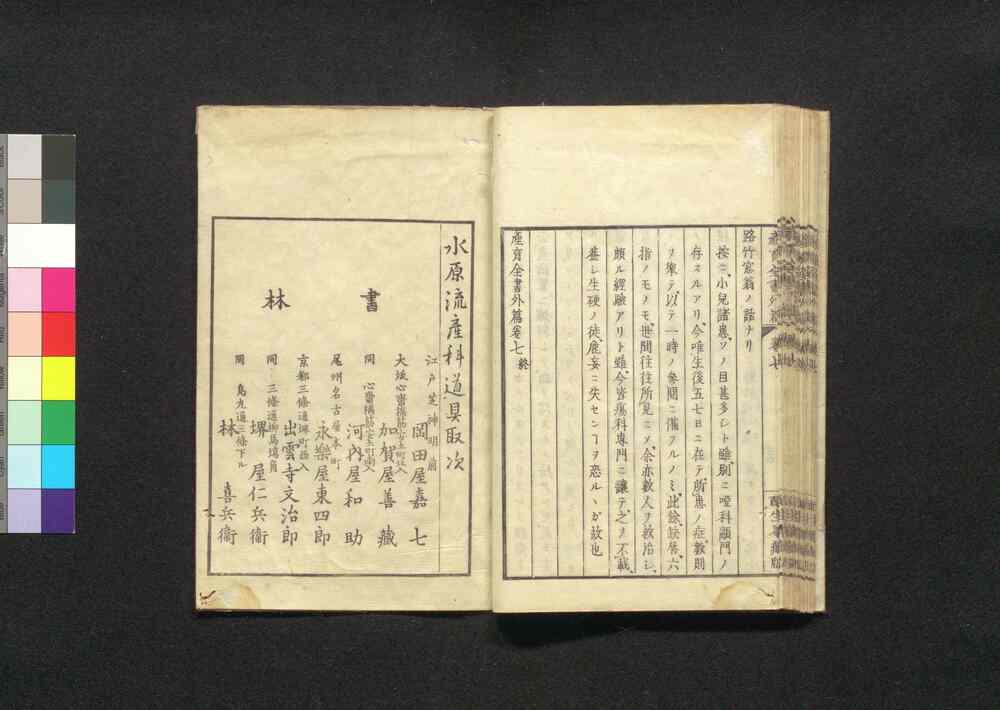 路竹窓翁ノ話ナリ
按ニ小兒諸患ソノ目甚多シト雖別ニ啞科顓門ノ
存スルアリ今唯生後五七日ニ在テ所患ノ症數則
ヲ擧テ以テ一時ノ參閲ニ備フルノミ此餘缺唇六
指ノモノモ世間往往所見ニメ余亦數人ヲ救治シ
頗ル經驗アリト雖今皆瘍科專門ニ讓テ之ヲ不載
蓋シ生硬ノ徒麁妄ニ失センヿヲ恐ルヽガ故也
產育全書外篇卷七終
水原流產科道具取次
書林
江戸芝神明前
岡田屋嘉七
大坂心齋橋筋
加賀屋善藏
同 心齋橋筋
河内屋和助
尾州名古屋本町
永樂屋東四郎
京都三條通
出雲寺文治郎
同 三條通柳馬塲角
堺屋仁兵衞
同 烏丸通三條下ル
林喜兵衞